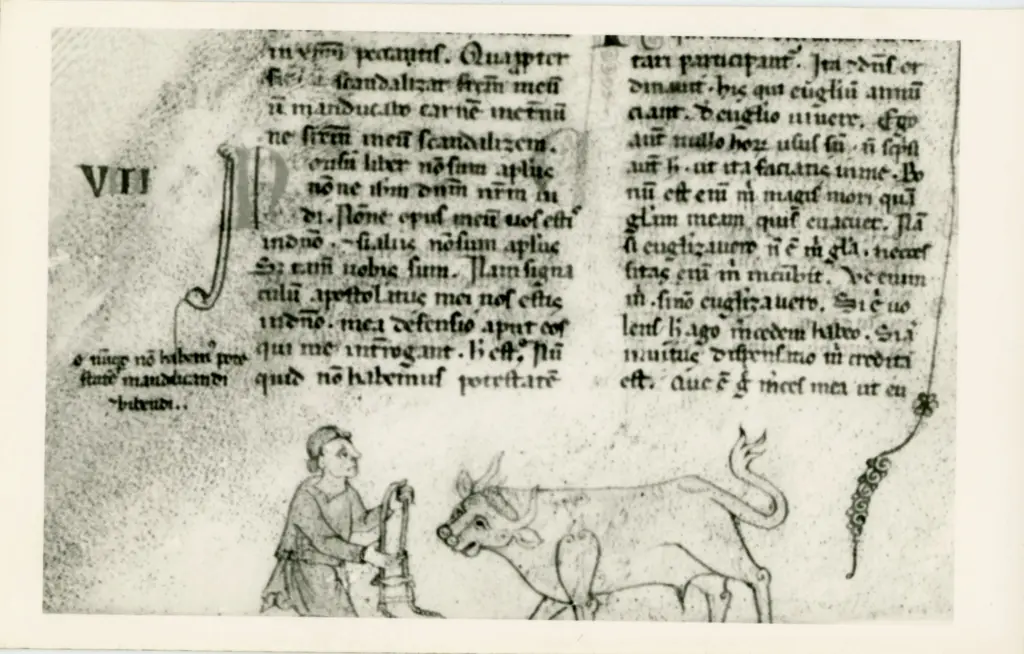 peccatis. Quapp̄ter
scandalizat fr̄em meū
ñ manducabo carnē inet̄nū
ne fr̄em meū scandalizem.
VII
onsū liber nōsum aplus
nōne ihm dnm nr̄m ui
di. Nōne opus meū uos estis
indno. ⁊ si aliis nōsum aplus
Sꝫ tam̄ uobis sum. Nam signa
culū apostolatus mei uos estis
indno. mea defensio aput eos
qui me int̄rogant. h̄ est. Nū
quid nōhabemus potestatē
nūqd nō habemꝰ pote
statē manducandi
⁊ bibendi..
tari participant. Ita ⁊ dn̄s or
dinauit. his qui eūgliū annū
ciant. deuglio uiuere. Ego
aūt nullo hoꝝ usus sū. ñ scpsi
aūt h̄. ut ita faciatis inme. Bo
nū est enī m̄ magis mori quā
gl̄am meam quis euacuet. Nā
si euglizauero ñ ē m̄ gl̄a. neces
sitas enī m̄ incūbit. Ve enim
m̄. sinō euglizauero. Si ē uo
lens h̄ ago m̄cedem habeo. Si ā
inuitus dispensatio m̄ credita
est. Que ē g̊ m̄ces mea ut eu